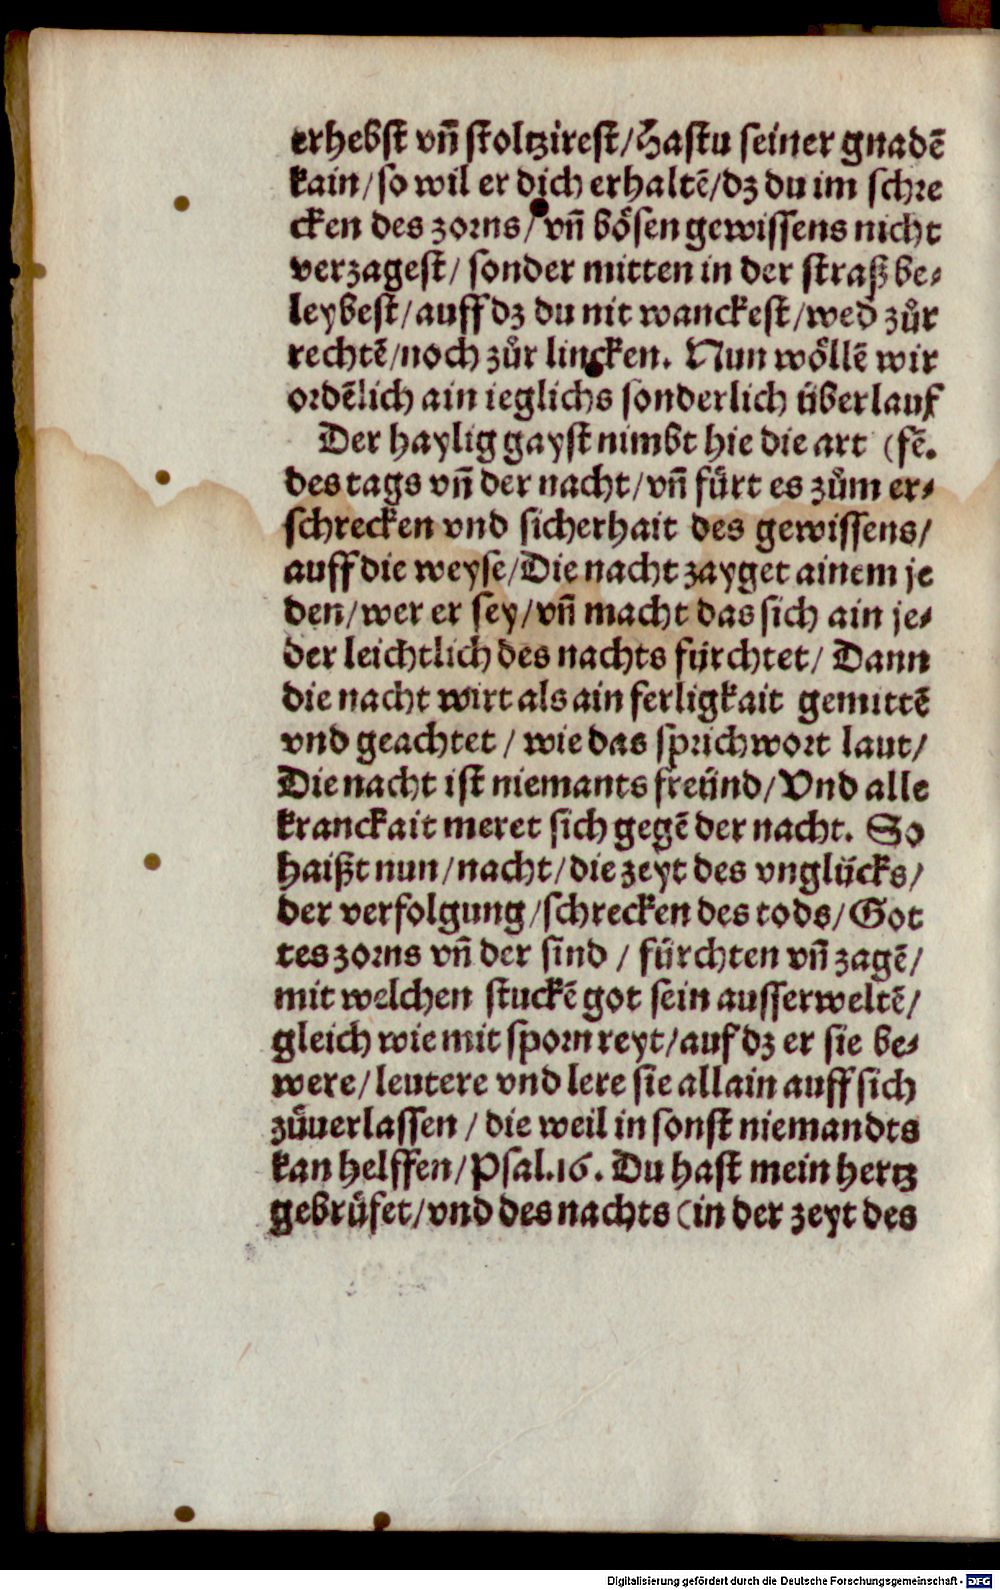 erhebst vñ stoltzirest/Hastu seiner gnadē
kain/so wil er dich erhaltē/dz du im schre
cken des zorns/vñ bösen gewissens nicht
verzagest/ sonder mitten in der straß be⸗
leybest/auff dz du nit wanckest/wed̕ zůr
rechtē/noch zůr lincken. Nun wöllē wir
ordēlich ain ieglichs sonderlich überlauf
Der haylig gayst nimbt hie die art (fē.
des tags vñ der nacht/vñ fürt es zům er⸗
schrecken vnd sicherhait des gewissens/
auff die weyse/Die nacht zayget ainem je
den/wer er sey/vñ macht das sich ain je⸗
der leichtlich des nachts fürchtet/ Dann
die nacht wirt als ain ferligkait gemittē
vnd geachtet / wie das sprichwort laut/
Die nacht ist niemants freünd/Vnd alle
kranckait meret sich gegē der nacht. So
haißt nun/nacht/die zeyt des vnglücks/
der verfolgung/schrecken des tods/Got
tes zorns vñ der sind / fürchten vñ zagē/
mit welchen stuckē got sein ausserweltē/
gleich wie mit sporn reyt/auf dz er sie be⸗
were/leutere vnd lere sie allain auff sich
zůuerlassen / die weil in sonst niemandts
kan helffen/Psal.16. Du hast mein hertz
gebrüfet/vnd des nachts (in der zeyt des
Digitalisierung gefördert durch die Deutsche Forschungsgemeinschaft - DFG